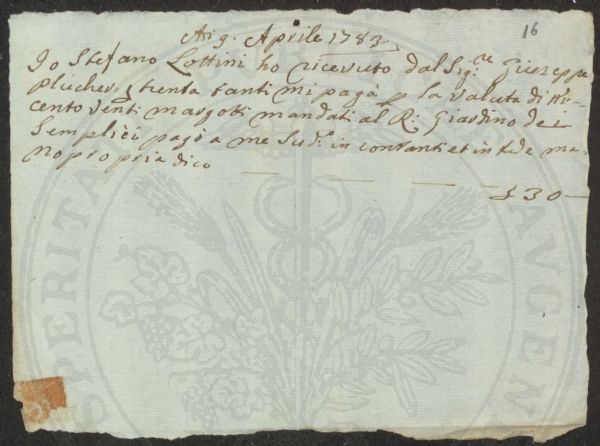 16
Aig. Aprile 1783
Io Stefano Lottini ho ricevuto dal Sig.re Giuseppe
plucher ₤ trenta tanti mi paga p la valuta di Nr
cento venti margoti mandati al R: Giardino dei
Semplici pagò a me Sud.o in contanti et in fede ma-
no propria dico
₤ 30
PROSPERITAS
PUBL
AUGENS